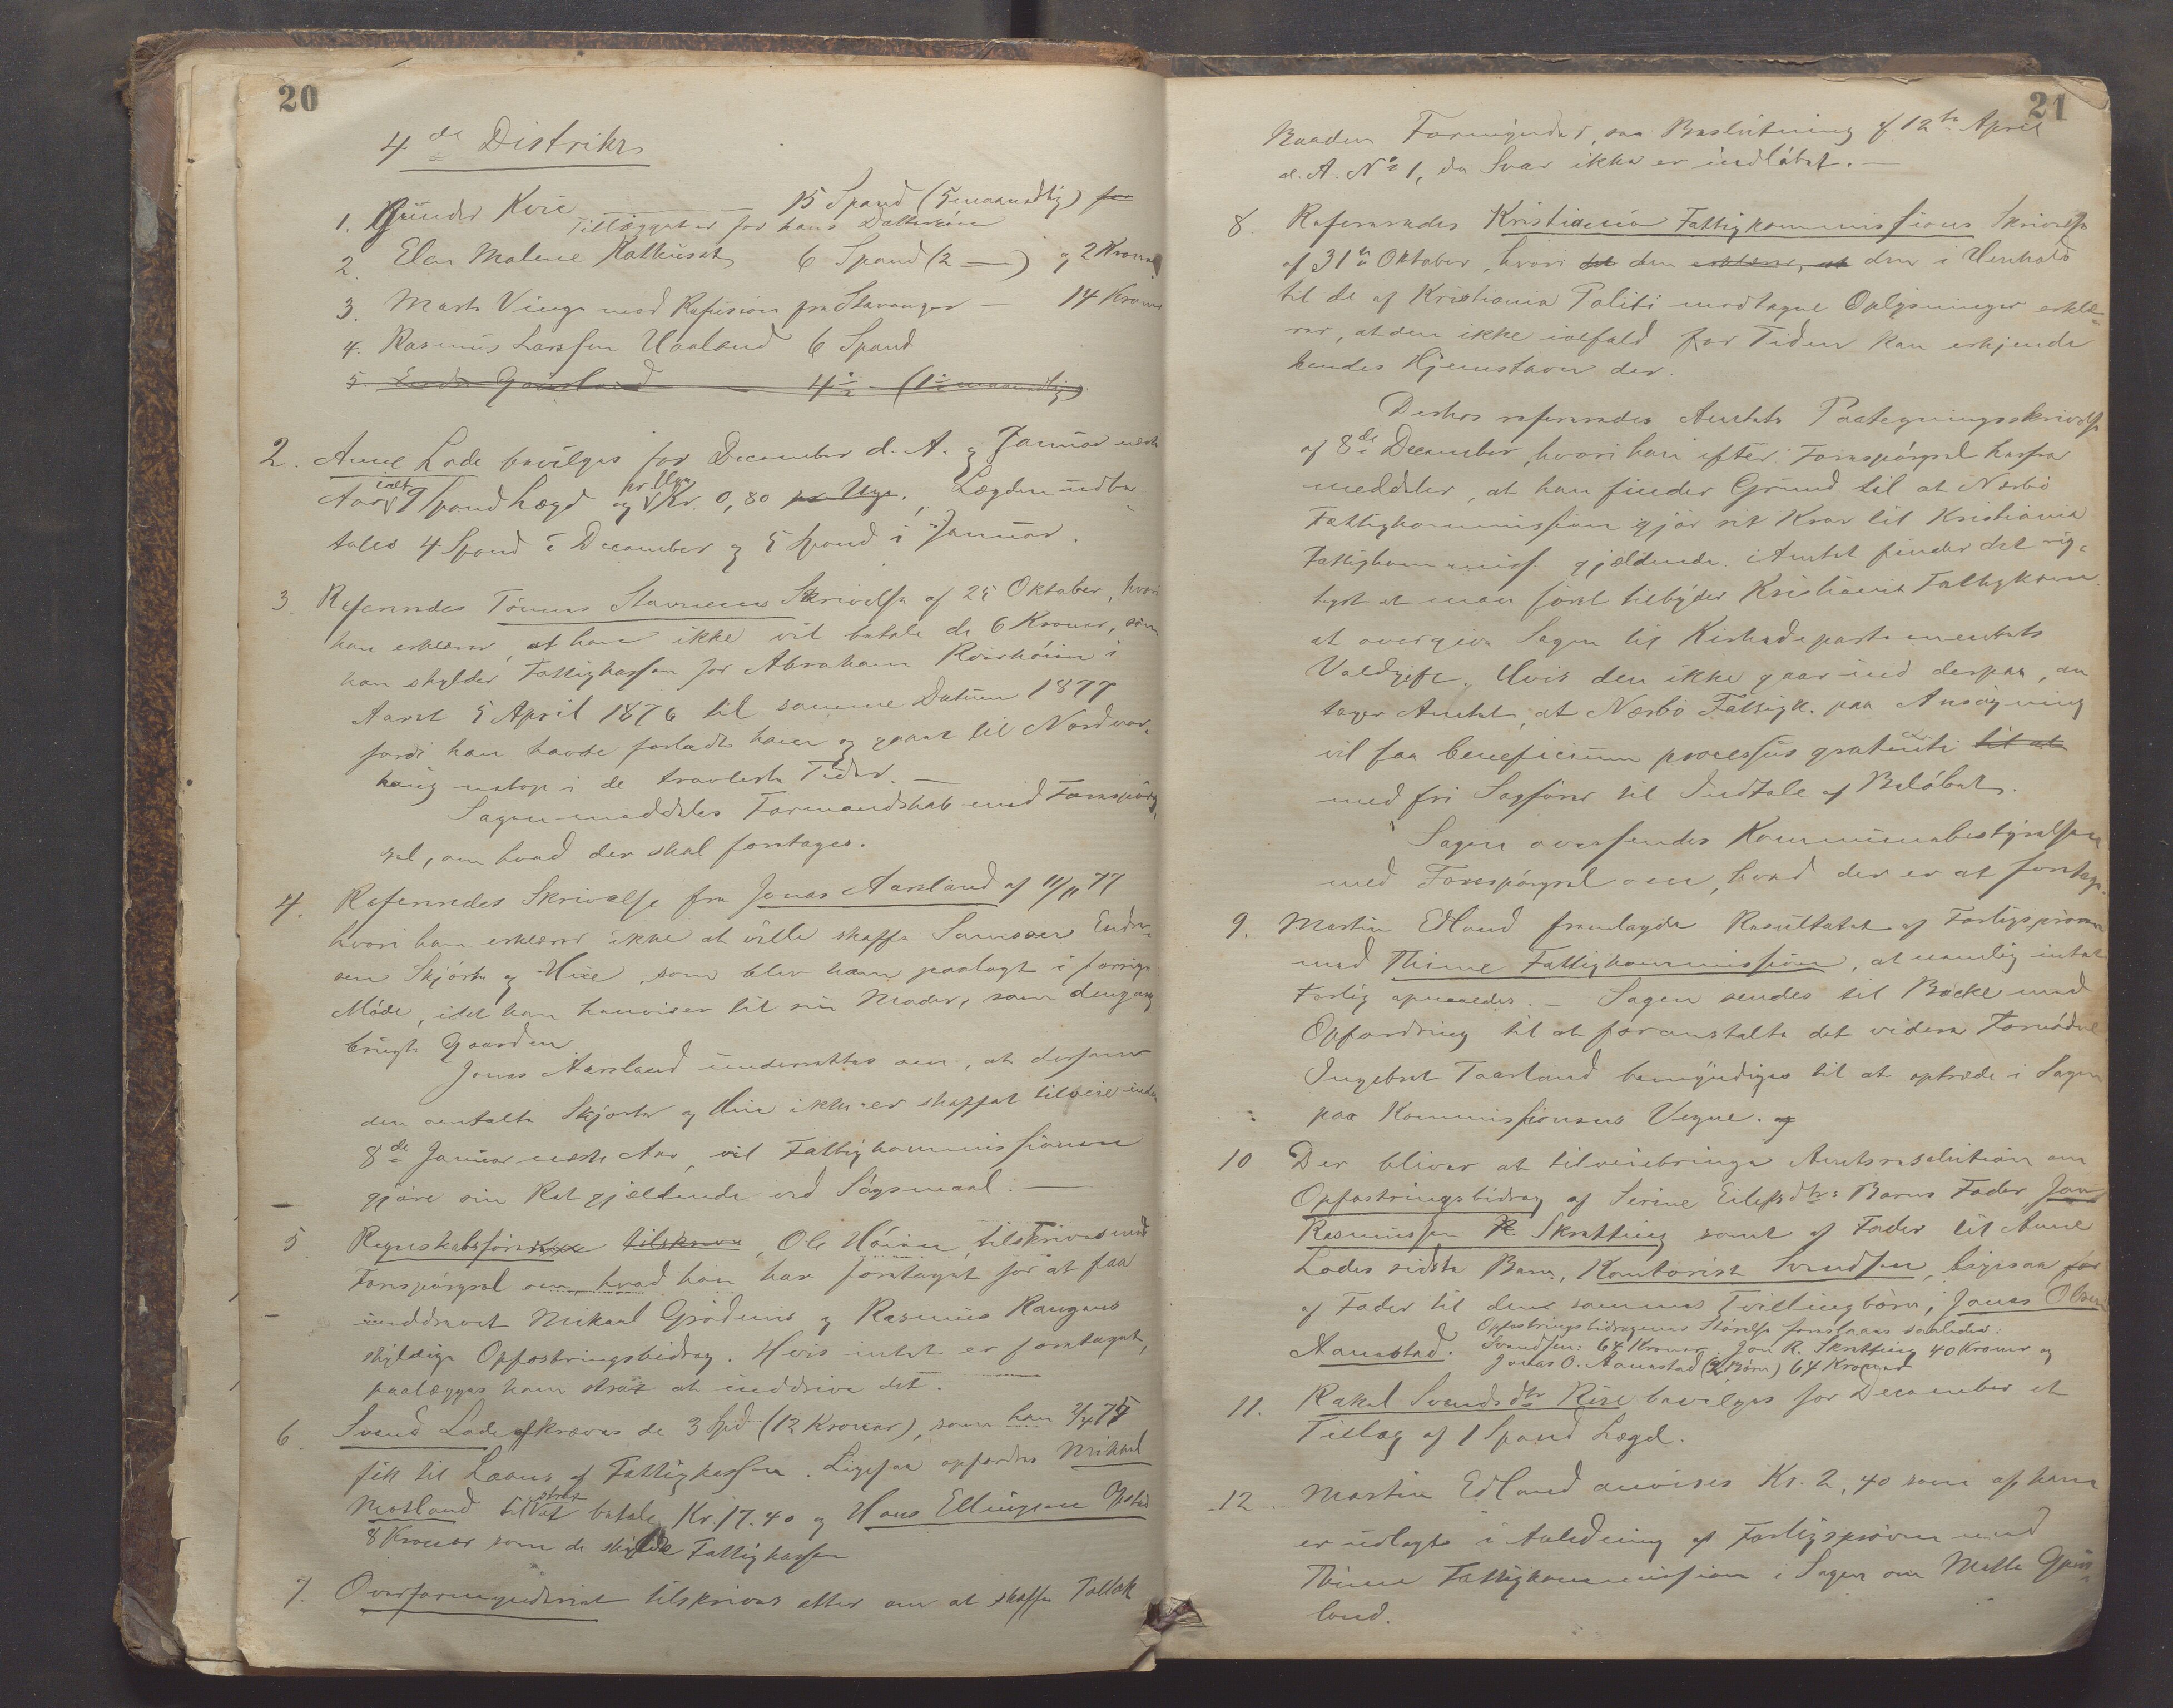 20
4de Distrikt
1. Gunder Kvie 15 Spand (5 maanedlig) for
Tillægget er for hans Dattersøn
2. Elen Malene Kalhuset 6 Spand (2 —) og 2 Kroner
3. Marta Vinge mod Refusion fra Stavanger — 14 Kroner
4. Rasmus Larssen Haaland 6 Spand
5. Endre Gausland 4½ (1½ maanedlig)
2. Anne Lode bevilges for December d. A. og Januar næste
Aar ialt 9 Spand Lægd og pr Uge Kr. 0,80 pr Uge. Lægden udbe-
tales 4 Spand i December og 5 Spand i Januar.
3. Refereredes Tønnes Stavnems Skrivelse af 25 Oktober, hvori
han erklærer, at han ikke vil betale de 6 Kroner, som
han skylder Fattigkassen for Abraham Risvhøien i
Aaret 5 April 1876 til samme Datum 1877
fordi han havde forladt ham og gaaet til Nordvar-
haug netop i de travleste Tider. —
Sagen meddeles Formandskab med Forespørg-
sel, om hvad der skal foretages.
4. Refereredes Skrivelse fra Jonas Aarsland af 11/11 77
hvori han erklærer ikke at ville skaffe Samson Endre-
sen Skjorte og Hue, som blev ham paalagt i forrige
Møde, idet han henviser til sin Moder, som dengang
brugte Gaarden.
Jonas Aarsland underrettes om, at dersom
den omtalte Skjorte og Hue ikke er skaffet tilveie inden
8de Januar næste Aar, vil Fattigkommissionen
gjøre sin Ret gjældende ved Søgsmaal. —
5. Regnskabsfører tilskrives, Ole Høien, tilskrives med
Forespørgsel om, hvad han har foretaget for at faa
inddrevet Mikael Grødems og Rasmus Kangens
skyldige Opfostringsbidrag. Hvis intet er foretaget,
paalægges ham strax at inddrive det.
6. Svend Lode afkræves de 3 Spd (12 Kroner), som han 2/4 75
fik til Laans af Fattigkassen. Ligesaa opfordres Mikael
Motland til strax at betale Kr. 17.40 og Hans Ellingsen Opstad
8 Kroner som de skylde Fattigkassen
7. Overformynderiet tilskrives atter om at skaffe Tollak
21
Baaden Formynder, saa Beslutning af 12te April
d. A. No 1, da Svar ikke er indløbet. —
8. Refereredes Kristiania Fattigkommissions Skrivelse
af 31te Oktober, hvori det den erklærer, at den i Henhold
til de af Kristiania Politi modtagne Oplysninger erklæ-
rer, at den ikke ialfald for Tiden kan erkjende
hendes Hjemstavn der.
Derhos refereredes Amtets Paategningsskrivelse
af 8de December, hvori han efter Forespørgsel herfra
meddeler, at han finder Grund til at Nærbø
Fattigkommission gjør sit Krav til Kristiania
Fattigkommiss. gjældende. Amtet finder det rig-
tigst at man først tilbyder Kristiania Fattigkom.
at overgive Sagen til Kirkedepartementets
Voldgift. Hvis den ikke gaar ind derpaa, an-
tager Amtet, at Nærbø Fattigk. paa Ansøgning
vil faa beneficium processus gratuiti til at
med fri Sagfører til Indtale af Beløbet.
Sagen oversendes Kommunebestyrelsen
med Forespørgsel om, hvad der er at foretage.
9. Martin Edland fremlagde Resultatet af Forligsprøven
med Thime Fattigkommission, at nemlig intet
Forlig opnaaedes. — Sagen sendes til Backe med
Opfordring til at foranstalte det videre Fornødne
Ingebret Taarland bemyndiges til at optræde i Sagen
paa Kommissionens Vegne. og
10 Der bliver at tilveiebringe Amtsresolution om
Opfostringsbidrag af Serine Eilefsdtrs Barns Fader Jon
Rasmussen R Skretting samt af Fader til Anne
Lodes sidste Barn, Kontorist Svendsen, ligesaa for
af Fader til den sammes Tvillingbørn, Jonas Olsen
Aanestad. Opfostringsbidragenes Størrelse foreslaaes saaledes:
Svendsen: 64 Kroner, Jon R. Skretting 40 Kroner og
Jonas O. Aanestad (2 Børn) 64 Kroner
11. Rakel Svendsdtr Risе bevilges for December et
Tillæg af 1 Spand Lægd.
12. Martin Edland anvises Kr. 2,40 som af ham
er udlagte i Anledning af Forligsprøven med
Thime Fattigkommission i Sagen om Mette Gjers-
land.